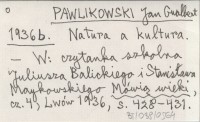 PAWLIKOWSKI Jan Gwalbert
1936b. Natura a kultura.
— W: czytanka szkolna
Juliusza Balickiego i Stanisława
Maykowskiego Mówią wieki,
cz. 4, Lwów 1936, s. 428-431.